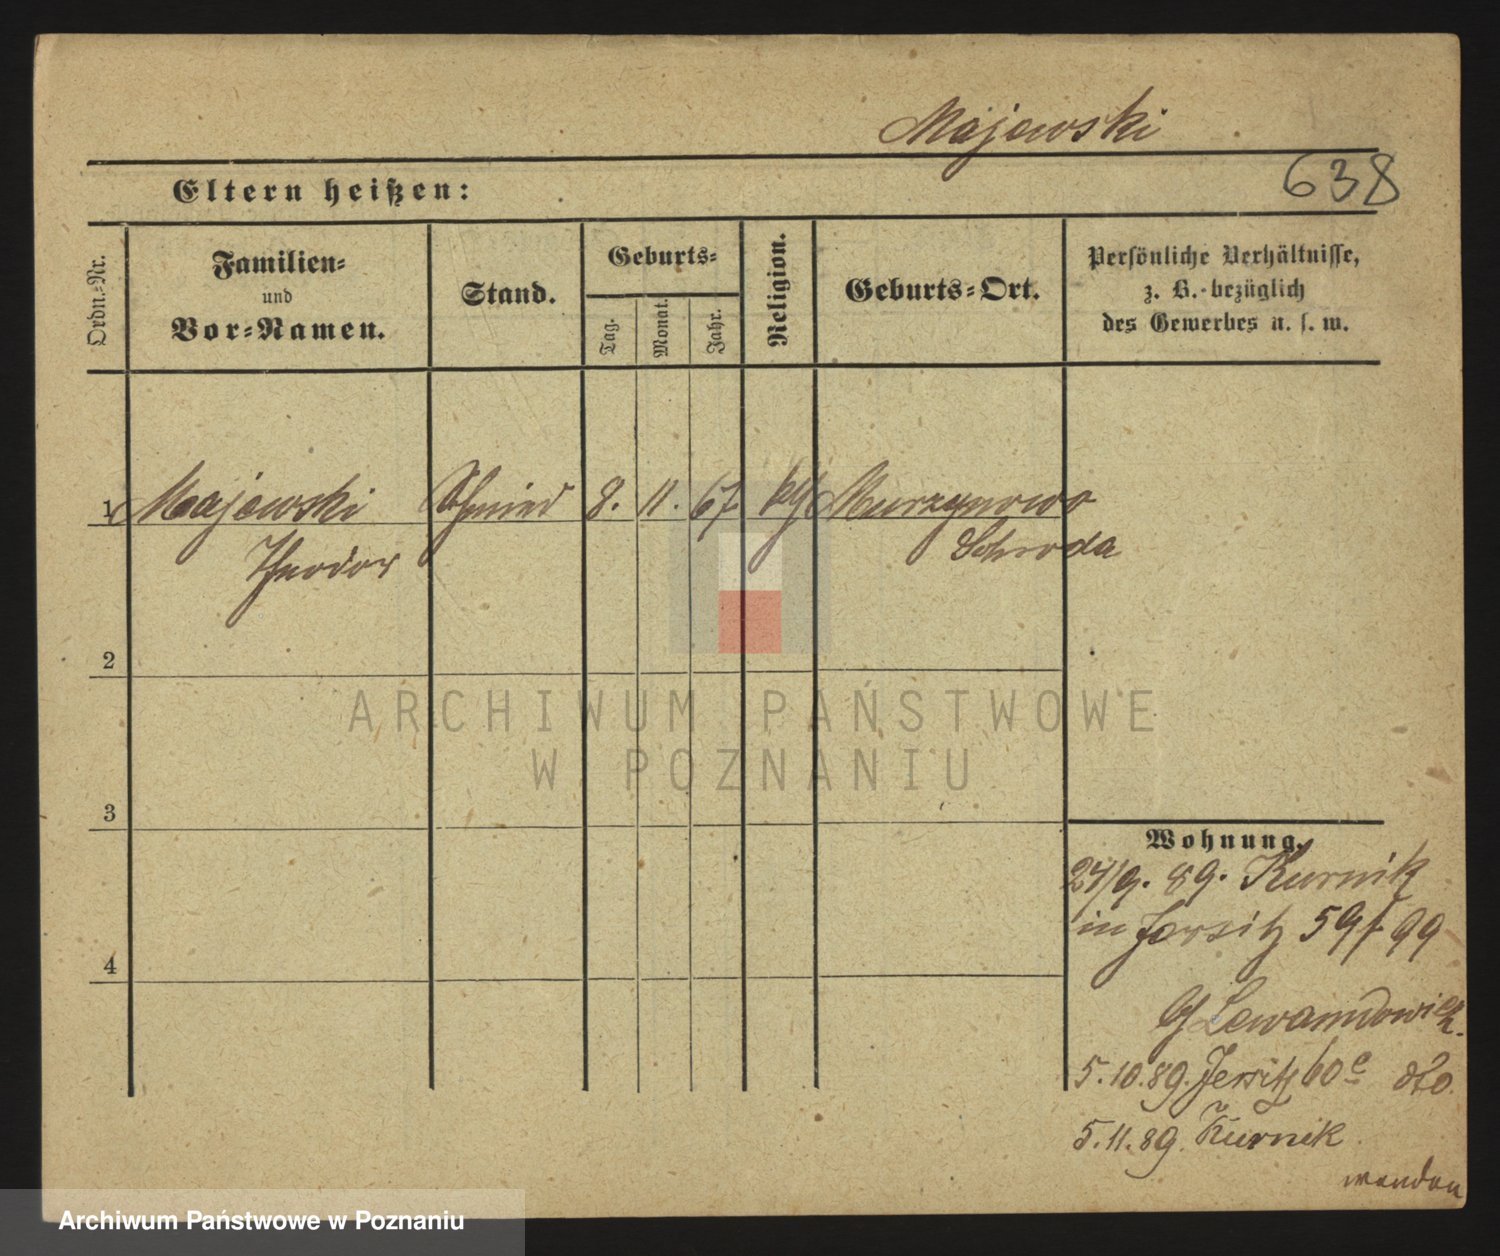 Majewski
638
Eltern heißen:
Ordn.-Nr.
Familien-
und
Vor-Namen.
Stand.
Geburts-
Tag.
Monat.
Jahr.
Religion.
Geburts-Ort.
Persönliche Verhältnisse,
z. B. bezüglich
des Gewerbes u. s. w.
1 Majewski Schmied 8. 11. 67 kth Murzynowo
Theodor Schroda
2
3
4
Wohnung.
24/9. 89. Kurnik
in Jersitz 59 99
Lewandowicz.
5.10.89. Jersitz 60c dto.
5.11.89. Kurnik
wenden
ARCHIWUM PAŃSTWOWE
W POZNANIU
Archiwum Państwowe w Poznaniu